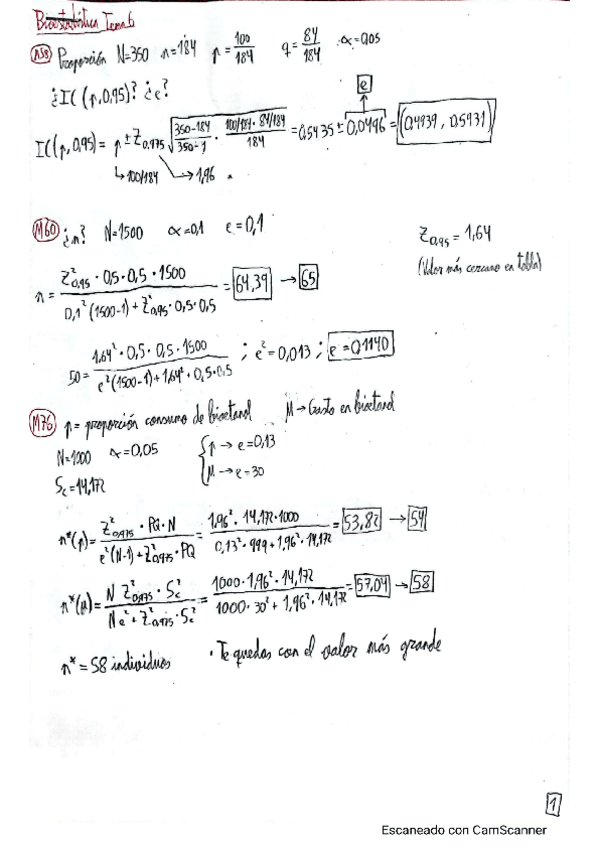 Bioestadística Tema 6
Proporción N=350 n=184 p=100/184 q=84/184 α=0,05
¿IC(p,0,95)? ¿e?
e
IC(p,0,95)= p ± Z0,975 √(350-184/350-1 · 100/184·84/184/184) = 0,5435 ± 0,0496 = (0,4939 , 0,5931)
↳ 100/184 → 1,96
M60 ¿n? N=1500 α=0,1 e=0,1
Z0,95 = 1,64
(Valor más cercano en tabla)
n = Z²0,95 · 0,5 · 0,5 · 1500 / 0,1² (1500-1) + Z²0,95 · 0,5 · 0,5 = 64,39 → 65
50 = 1,64² · 0,5 · 0,5 · 1500 / e² (1500-1) + 1,64² · 0,5 · 0,5 ; e² = 0,013 ; e = 0,1140
M76 p = proporción consumo de bioetanol μ → Gasto en bioetanol
N=1000 α=0,05 { p → e=0,13
Sc=14,172 μ → e=30
n*(p) = Z²0,975 · PQ · N / e²(N-1) + Z²0,975 · PQ = 1,96² · 14,172 · 1000 / 0,13² · 999 + 1,96² · 14,172 = 53,82 → 54
n*(μ) = N Z²0,975 · Sc² / N e² + Z²0,975 · Sc² = 1000 · 1,96² · 14,172 / 1000 · 30² + 1,96² · 14,172 = 57,04 → 58
n* = 58 individuos · Te quedas con el valor más grande
1
Escaneado con CamScanner